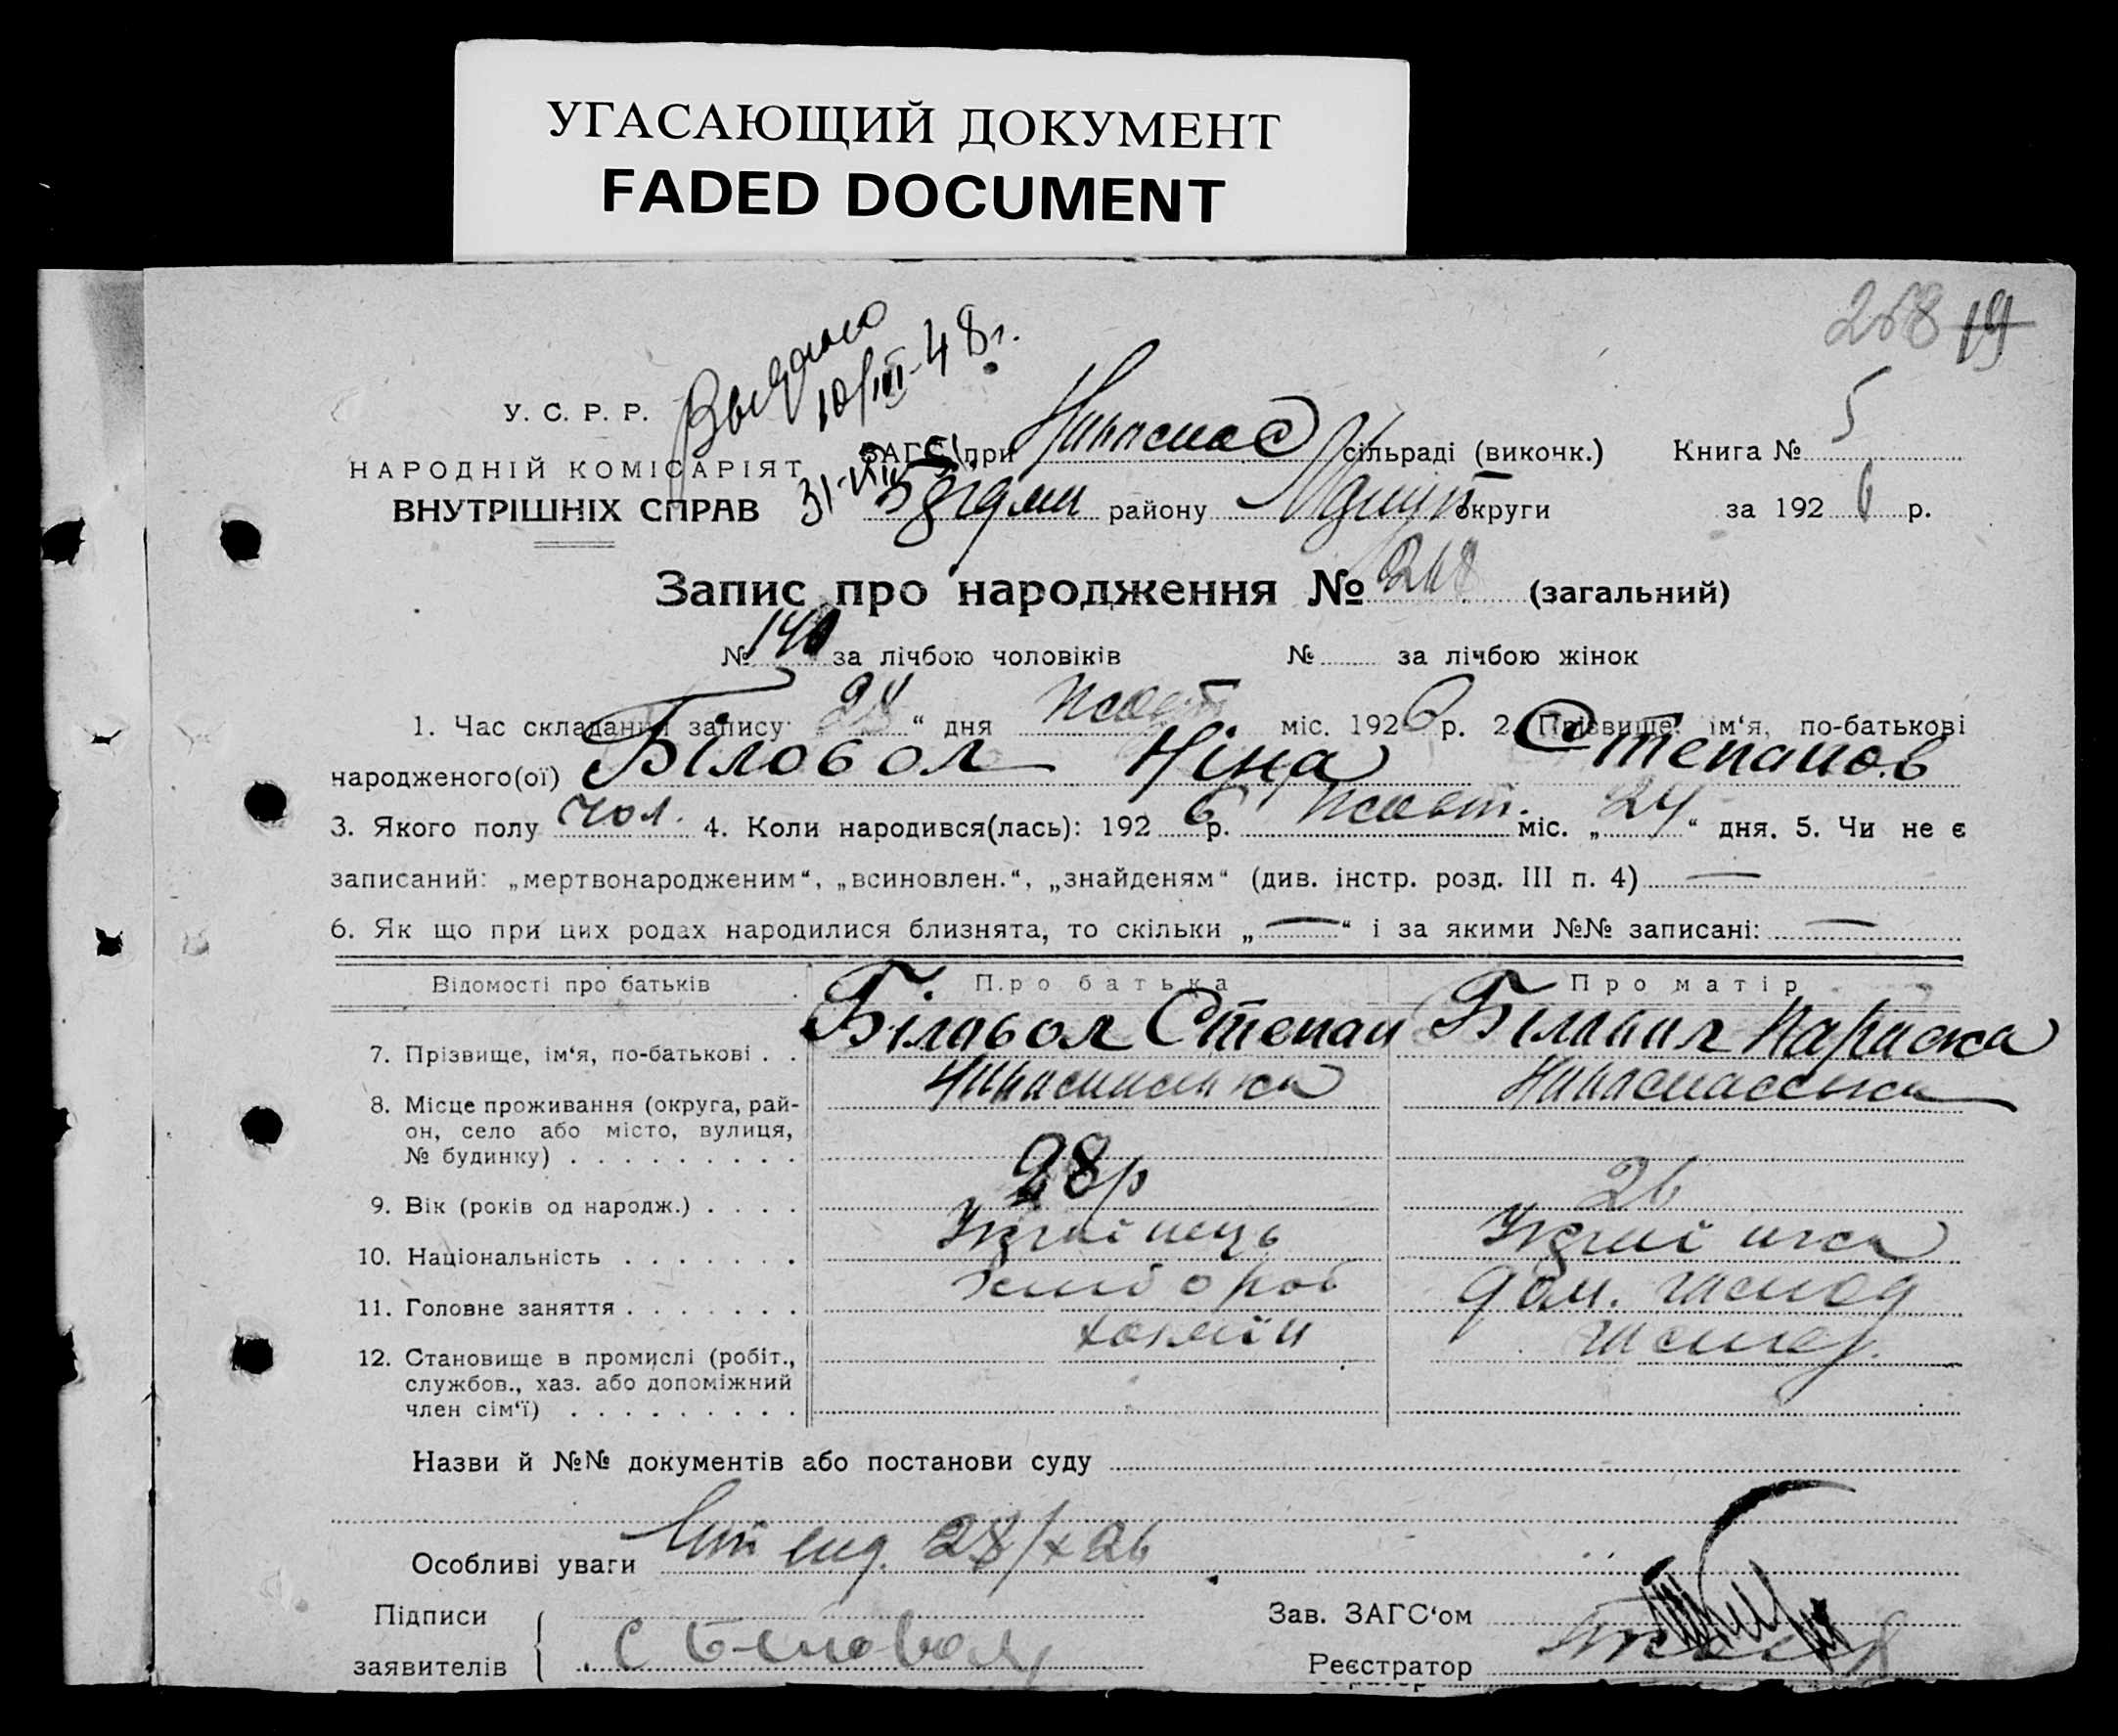 УГАСАЮЩИЙ ДОКУМЕНТ
FADED DOCUMENT
268 19
Выдано
10/III-48г.
У. С. Р. Р.
НАРОДНІЙ КОМІСАРІЯТ
ВНУТРІШНІХ СПРАВ
ЗАГС при сільраді (виконк.) Книга № 5
району округи за 192 6 р.
Запис про народження № 268 (загальний)
№ 140 за лічбою чоловіків № за лічбою жінок
1. Час складання запису: „28“ дня Жовт міс. 1926 р. 2. Прізвище, ім‘я, по-батькові
народженого(ої) Біловол Ніна Степанов
3. Якого полу чол. 4. Коли народився(лась): 192 6 р. Жовт. міс. „24“ дня. 5. Чи не є
записаний: „мертвонародженим“, „всиновлен.“, „знайденям“ (див. інстр. розд. III п. 4) —
6. Як що при цих родах народилися близнята, то скільки „—“ і за якими №№ записані: —
Відомості про батьків Про батька Про матір
7. Прізвище, ім‘я, по-батькові . . Біловол Степан Біловол Параска
8. Місце проживання (округа, рай-
он, село або місто, вулиця,
№ будинку) . . . . . . . . .
9. Вік (років од народж.) . . . . 28р 26
10. Національність . . . . . . . Українець Українка
11. Головне заняття . . . . . . . хлібороб дом.
12. Становище в промислі (робіт., хазяїн
службов., хаз. або допоміжний
член сім‘ї) . . . . . . . . .
Назви й №№ документів або постанови суду
Особливі уваги 28/X 26
Підписи
заявителів С Біловол
Зав. ЗАГС‘ом
Реєстратор